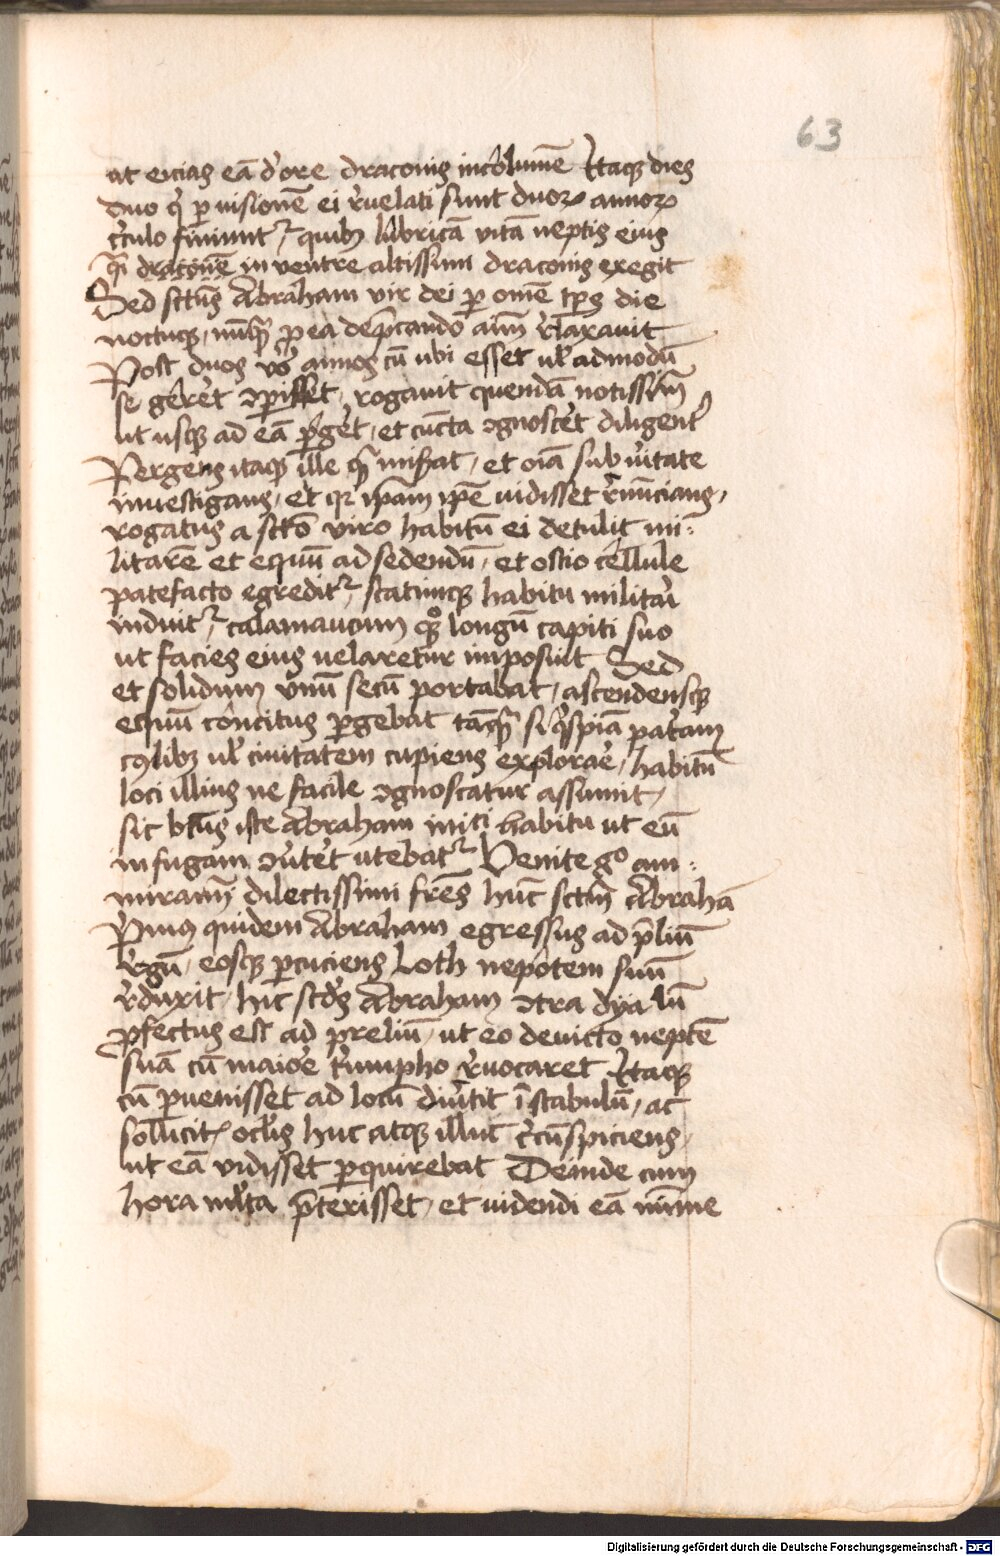 63
ut eicias eā d'ore draconis incolumē Itaq dies
duo q' p visionē ei r'uelati sunt duoꝝ annoꝝ
c'culo finiunt', quibꝫ lubricā vitā neptis eius
q̄i draconē in ventre altissimi draconis exegit
Sed sctūs Abraham vir dei p omē tp̄s die
noctuqꝫ, nūq̄ p ea dep̄cando aīm r'laxauit
Post duos v'o annos cū ubi esset ul' admodū
se gereret ꝯperisset, rogauit quendā notissimū
ut usqꝫ ad eā p'geret, et cūcta ꝯgnosceret diligent'
Pergens itaqꝫ ille q̄ missꝰ erat, et oīa sub v'itate
inuestigans, et qꝛ ip̄am ip̄e uidisset r'nūcians,
rogatus a scto viro habitū ei detulit mi-
litarē et equū ad sedendū, et ostio cellule
patefacto egredit', statimqꝫ habitu militari
induit', calamaucum qꝫ longū capiti suo
ut facies eius uelaretur imposuit Sed
et solidum vnū secū portabat, ascendensqꝫ
equū concitus p'gebat tāq̄ si q'spiā patriam
ul' ciuitatem cupiens explorare, habitū
loci illius ne facile ꝯgnoscatur assumit,
sic btūs iste Abraham i'mici habitu ut eū
in fugam ꝯu'teret utebat' Venite g° am-
miramī dilectissimi fr̄es hūc sctm Abrahā
P'mus quidem Abraham egressus ad p̄liū
r'gū, eosqꝫ p'cuciens Loth nepotem suū
r'duxit, hic sc̄dꝰs Abraham ꝯtra dyalū
p̄fectus est ad preliū, ut eo deuicto neptē
suā cū maiore t'umpho r'uocaret Itaqꝫ
cū p'uenisset ad locū diu'tit ī stabulū, ac
sollicit' oclis huc atqꝫ illuc c'cūspiciens,
ut eā vidisset p'quirebat Deinde cum
hora ml'ta p̄terisset, et uidendi eā mīme
Digitalisierung gefördert durch die Deutsche Forschungsgemeinschaft - DFG